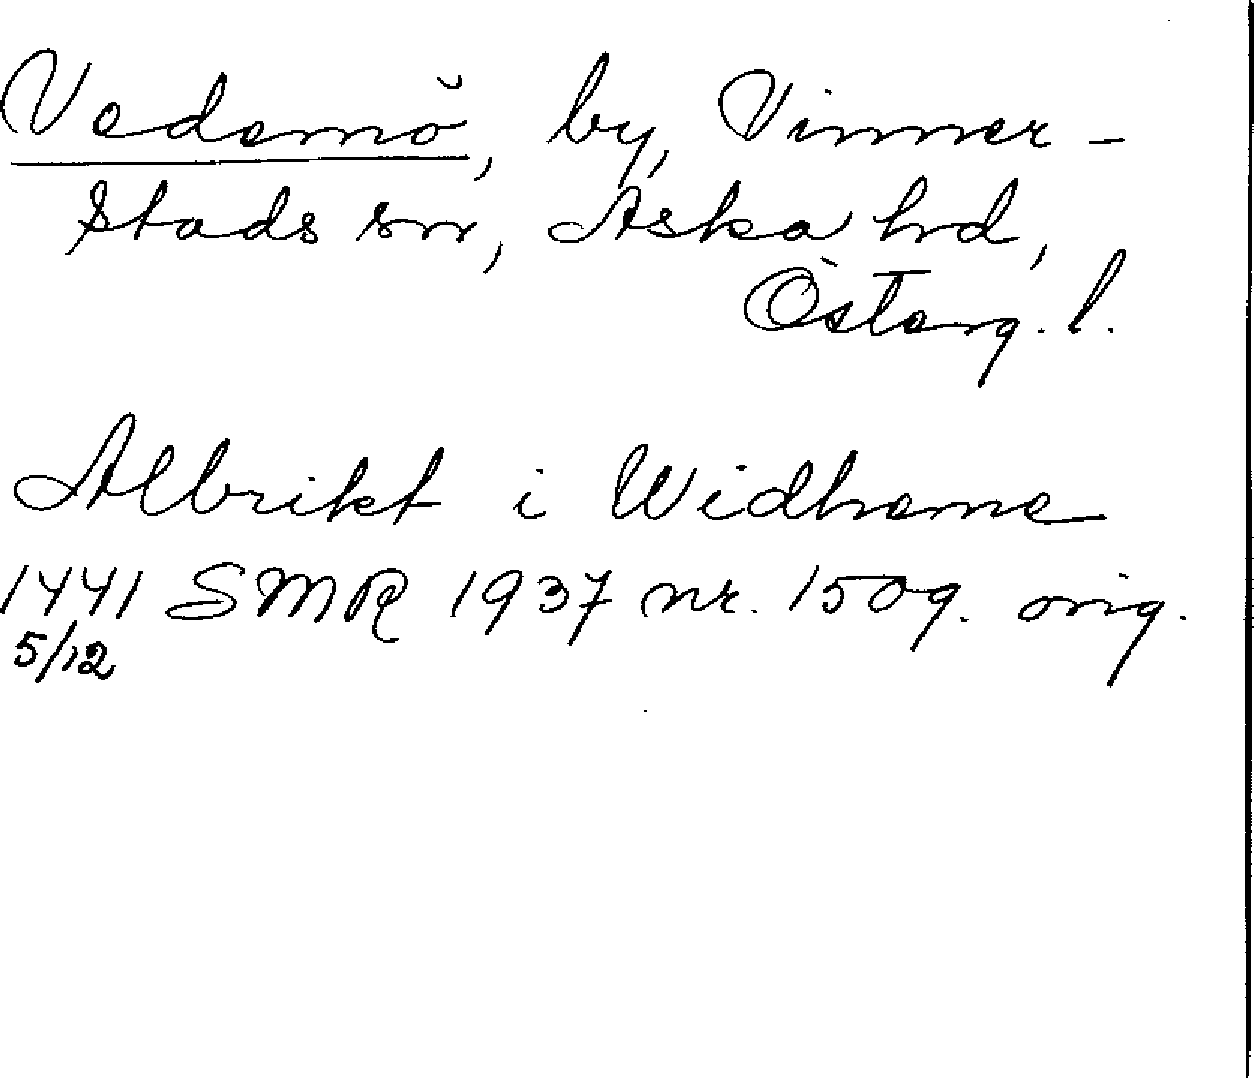 Vedemö, by, Vinner-
stads sn, Aska hd,
Österg. l.
Albrikt i Widheme
1441 SMR 1937 nr. 1509. orig.
5/12